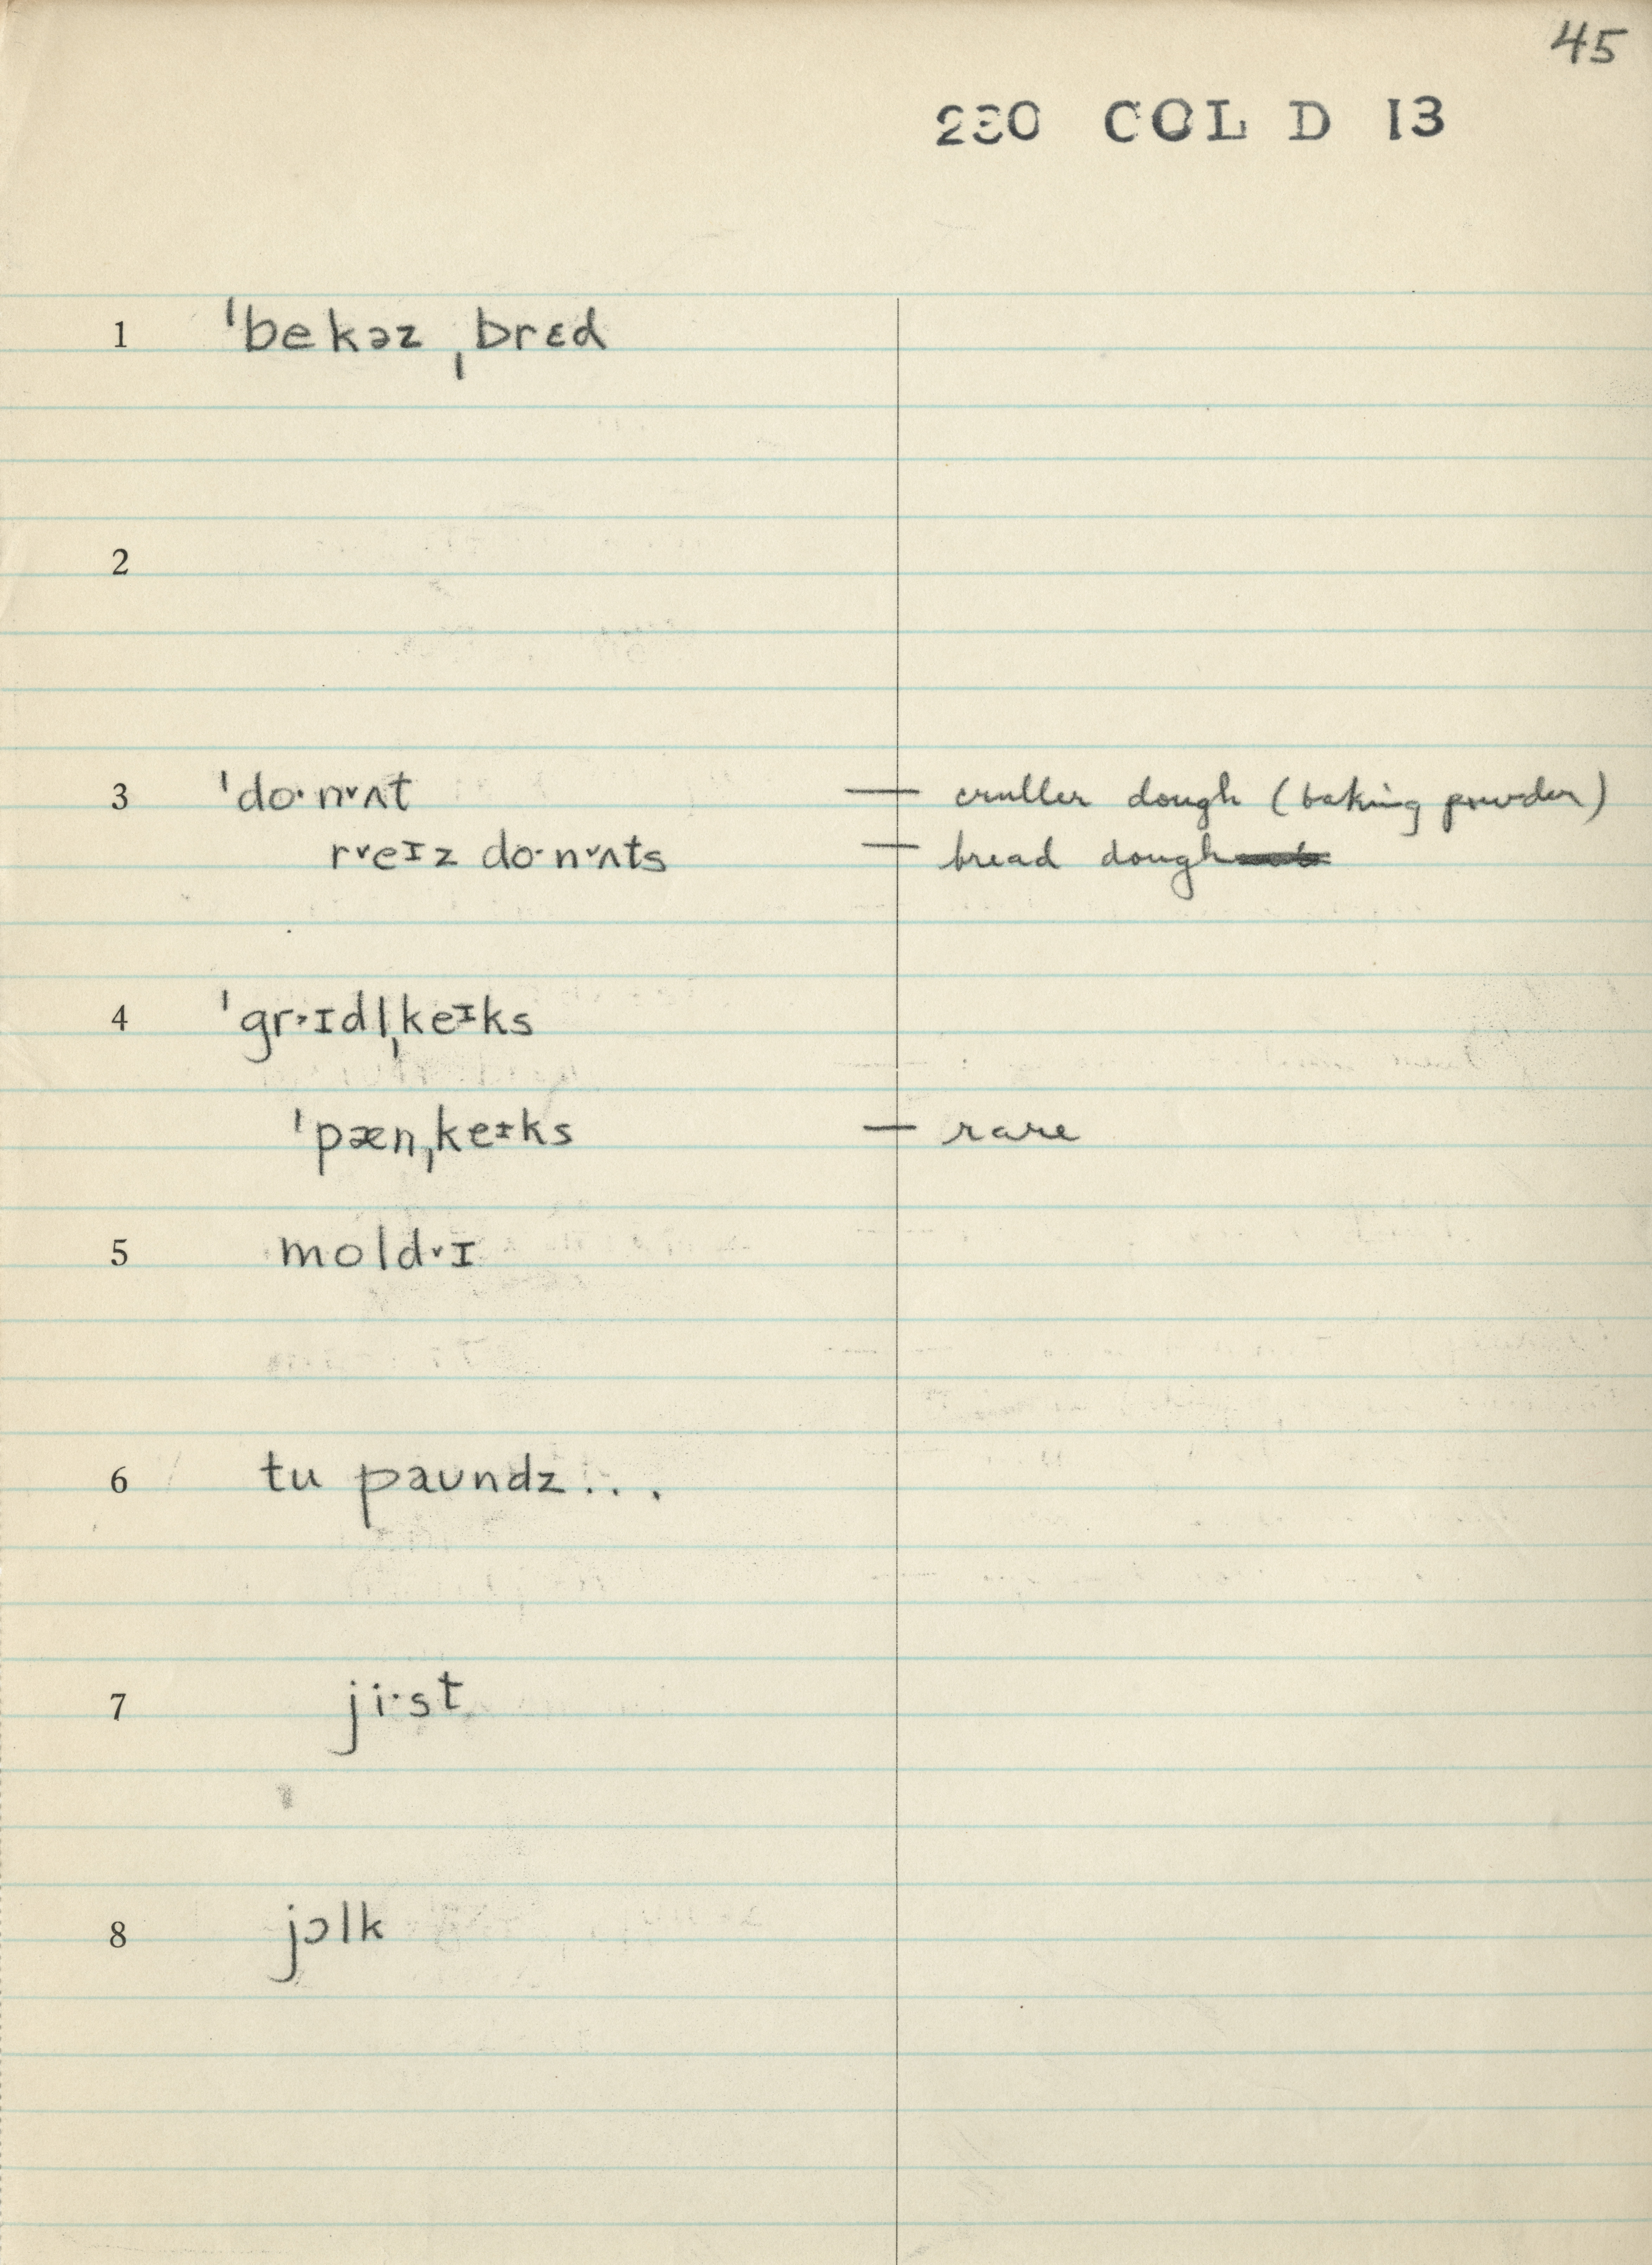 45
230 COL D 13
1 ˈbekəz ˌbrɛd
2
3 ˈdo·n˅ʌt — cruller dough (baking powder)
r˅eɪz do·n˅ʌts — bread dough
4 ˈgr˃ɪdlˌkeᶦks
ˈpænˌkeᶦks — rare
5 mold˅ɪ
6 tu paʊndz...
7 ji·st
8 jɔlk